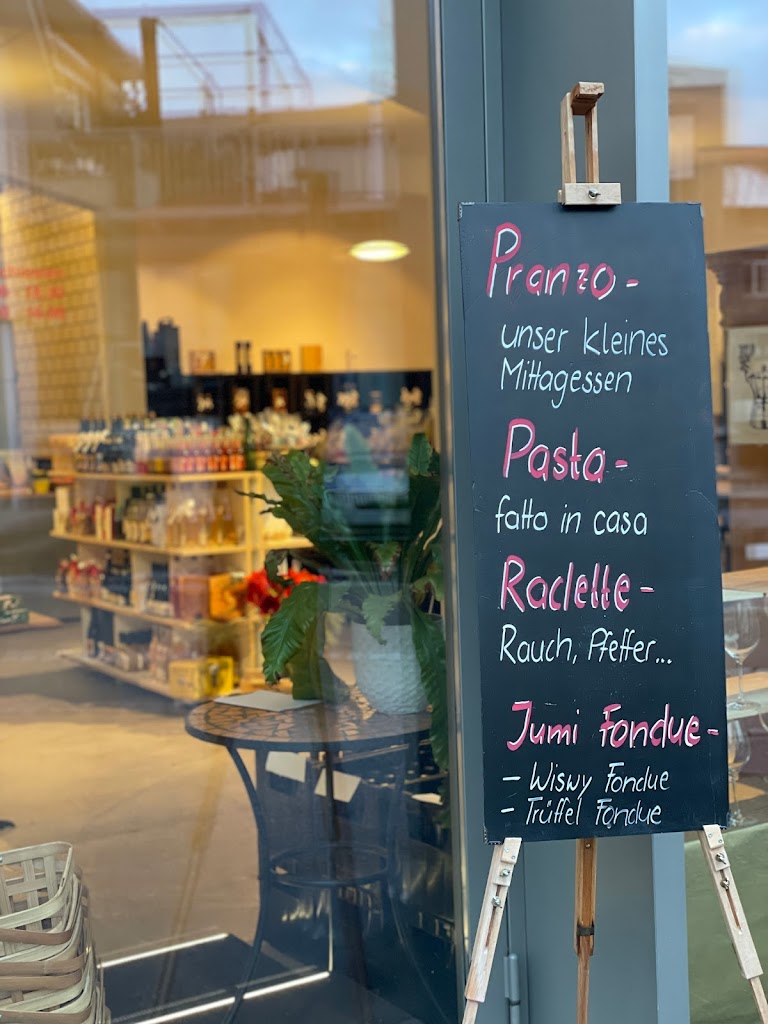 Pranzo -
unser kleines
Mittagessen
Pasta -
fatto in casa
Raclette -
Rauch, Pfeffer...
Jumi Fondue -
- Wiswy Fondue
- Trüffel Fondue